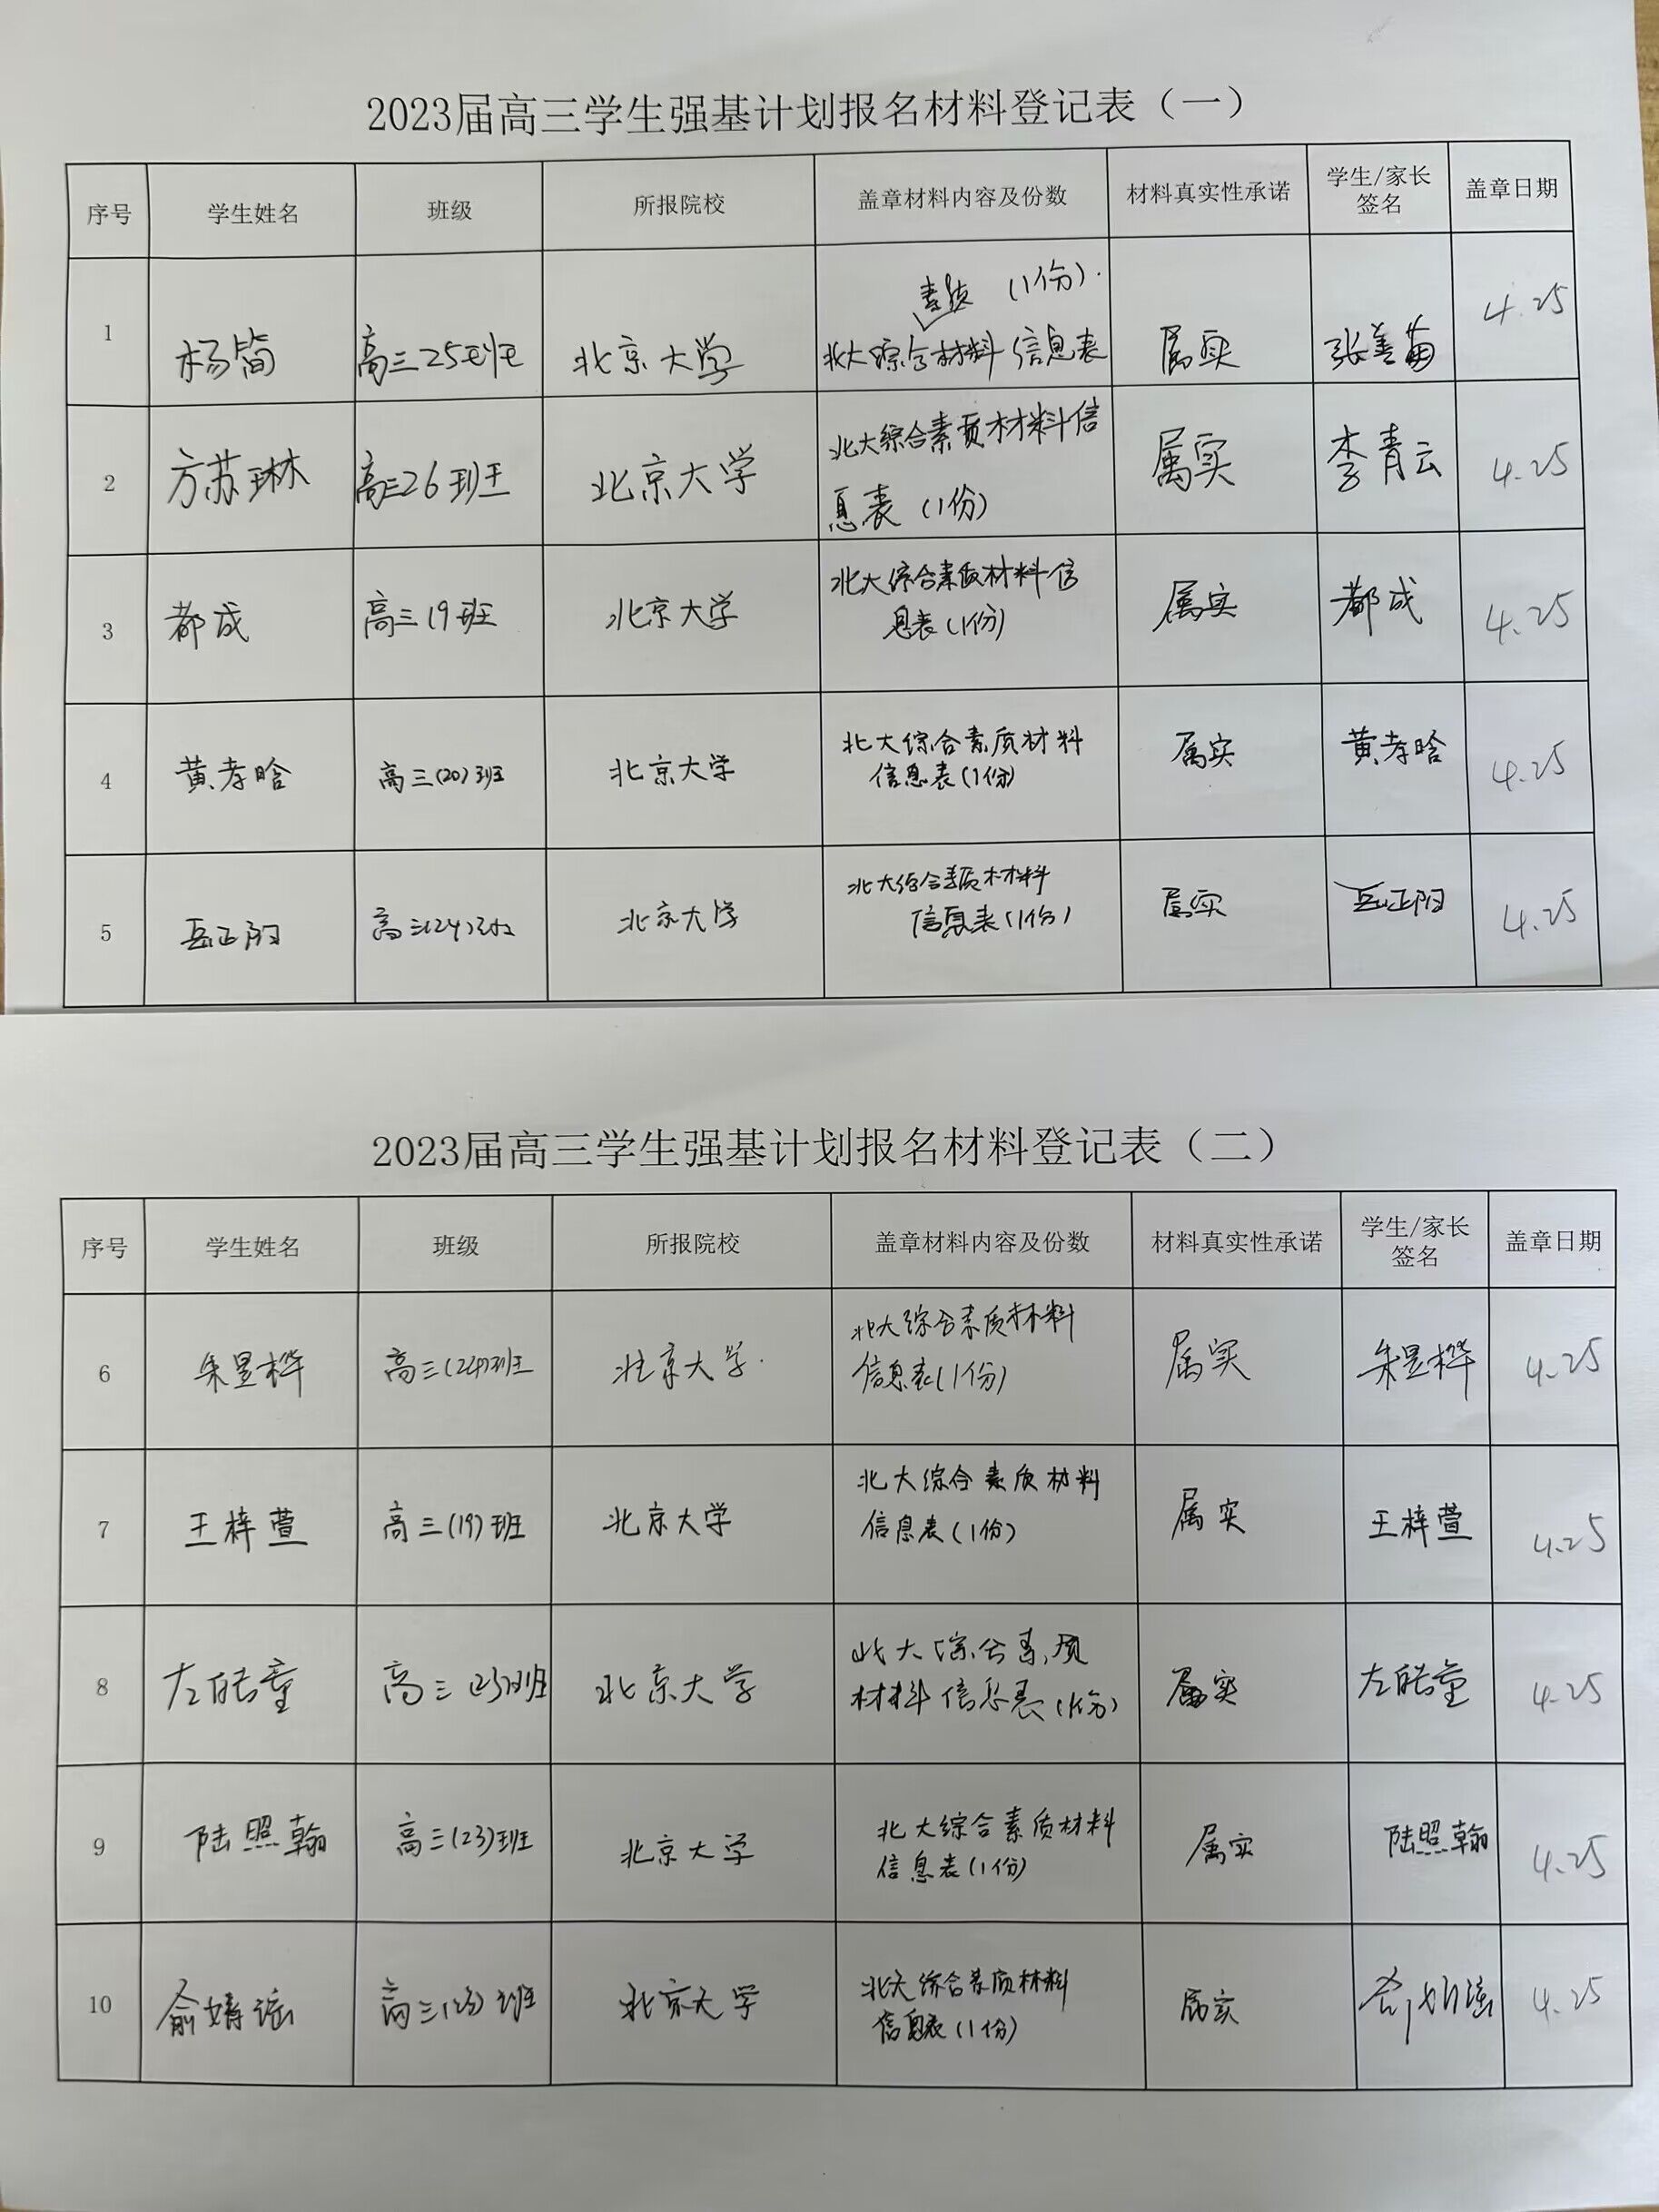 2023届高三学生强基计划报名材料登记表（一）
序号 学生姓名 班级 所报院校 盖章材料内容及份数 材料真实性承诺 学生/家长 盖章日期
签名
素质 (1份).
1 杨简 高三25班 北京大学 北大综合材料信息表 属实 张善苗 4.25
2 方苏琳 高三26班 北京大学 北大综合素质材料信 属实 李青云 4.25
息表(1份)
3 都成 高三19班 北京大学 北大综合素质材料信 属实 都成 4.25
息表(1份)
4 黄孝晗 高三(20)班 北京大学 北大综合素质材料 属实 黄孝晗 4.25
信息表(1份)
5 岳正阳 高三(24)班 北京大学 北大综合素质材料 属实 岳正阳 4.25
信息表(1份)
2023届高三学生强基计划报名材料登记表（二）
序号 学生姓名 班级 所报院校 盖章材料内容及份数 材料真实性承诺 学生/家长 盖章日期
签名
6 朱昱桦 高三(24)班 北京大学. 北大综合素质材料 属实 朱昱桦 4.25
信息表(1份)
7 王梓萱 高三(19)班 北京大学 北大综合素质材料 属实 王梓萱 4.25
信息表(1份)
8 左皓童 高三(23)班 北京大学 北大综合素质 属实 左皓童 4.25
材料信息表(1份)
9 陆照翰 高三(23)班 北京大学 北大综合素质材料 属实 陆照翰 4.25
信息表(1份)
10 俞婧瑶 高三(23)班 北京大学 北大综合素质材料 属实 4.25
信息表(1份)